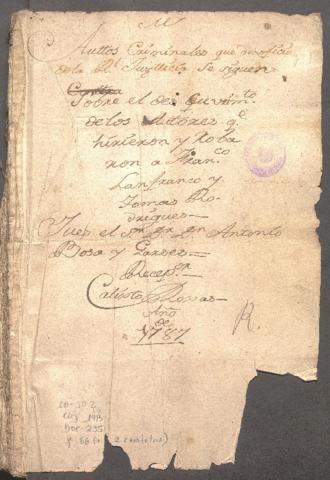 M
Auttos Criminales que de oficio
de la Rl Justticia Se siguen
Contra
Sobre el descuvrimto
de los Autores qe
hirieron y Roba
ron a Franco
Lanfranco y
Tomas Ro
drigues
Juez el Sor Dn Antonio
Bosa y Garses
Recepr
Calisto Rovas
Año
de
1787
R.
CO-JO 2
Leg 193
Doc-235
f. 86 (+ 2 caratulas)